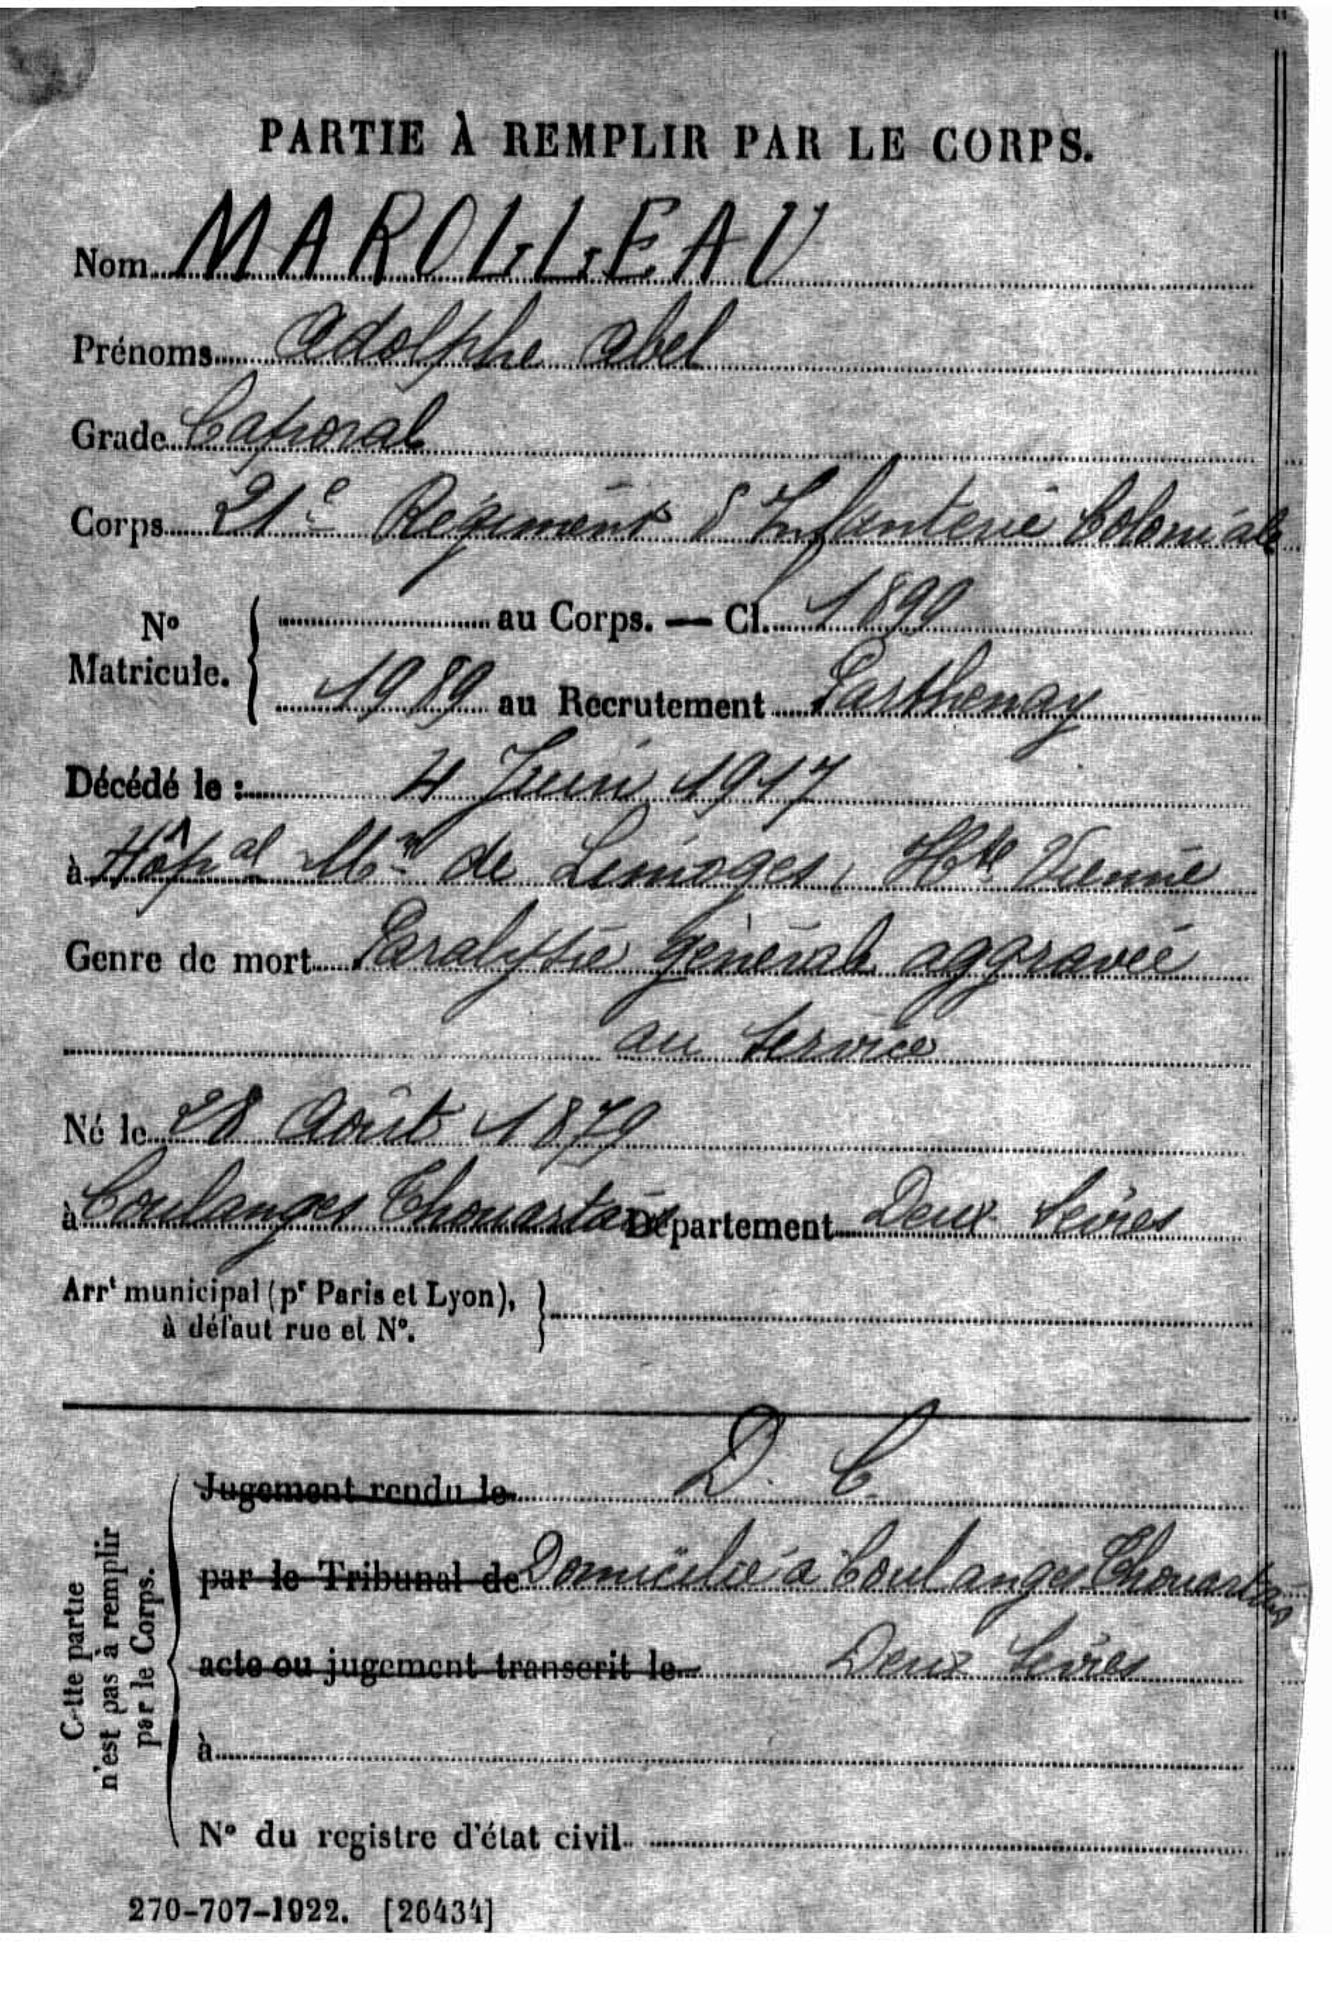 PARTIE À REMPLIR PAR LE CORPS.
Nom MAROLLEAU
Prénoms Adolphe Abel
Grade Caporal
Corps 21e Régiment d'Infanterie Coloniale
No Matricule. { au Corps. — Cl. 1899
1989 au Recrutement Parthenay
Décédé le : 4 Juin 1917
à Hôpal Mre de Limoges, Hte Vienne
Genre de mort Paralysie Générale aggravée
au Service
Né le 28 Août 1879
à Coulanges Thouarsais Département Deux Sèvres
Arrt municipal (pr Paris et Lyon),
à défaut rue et No. }
D. C.
Jugement rendu le
par le Tribunal de Domicilié à Coulanges Thouarsais
acte ou jugement transcrit le Deux Sèvres
à
No du registre d'état civil
Cette partie
n'est pas à remplir
par le Corps.
270-707-1922. [26434]